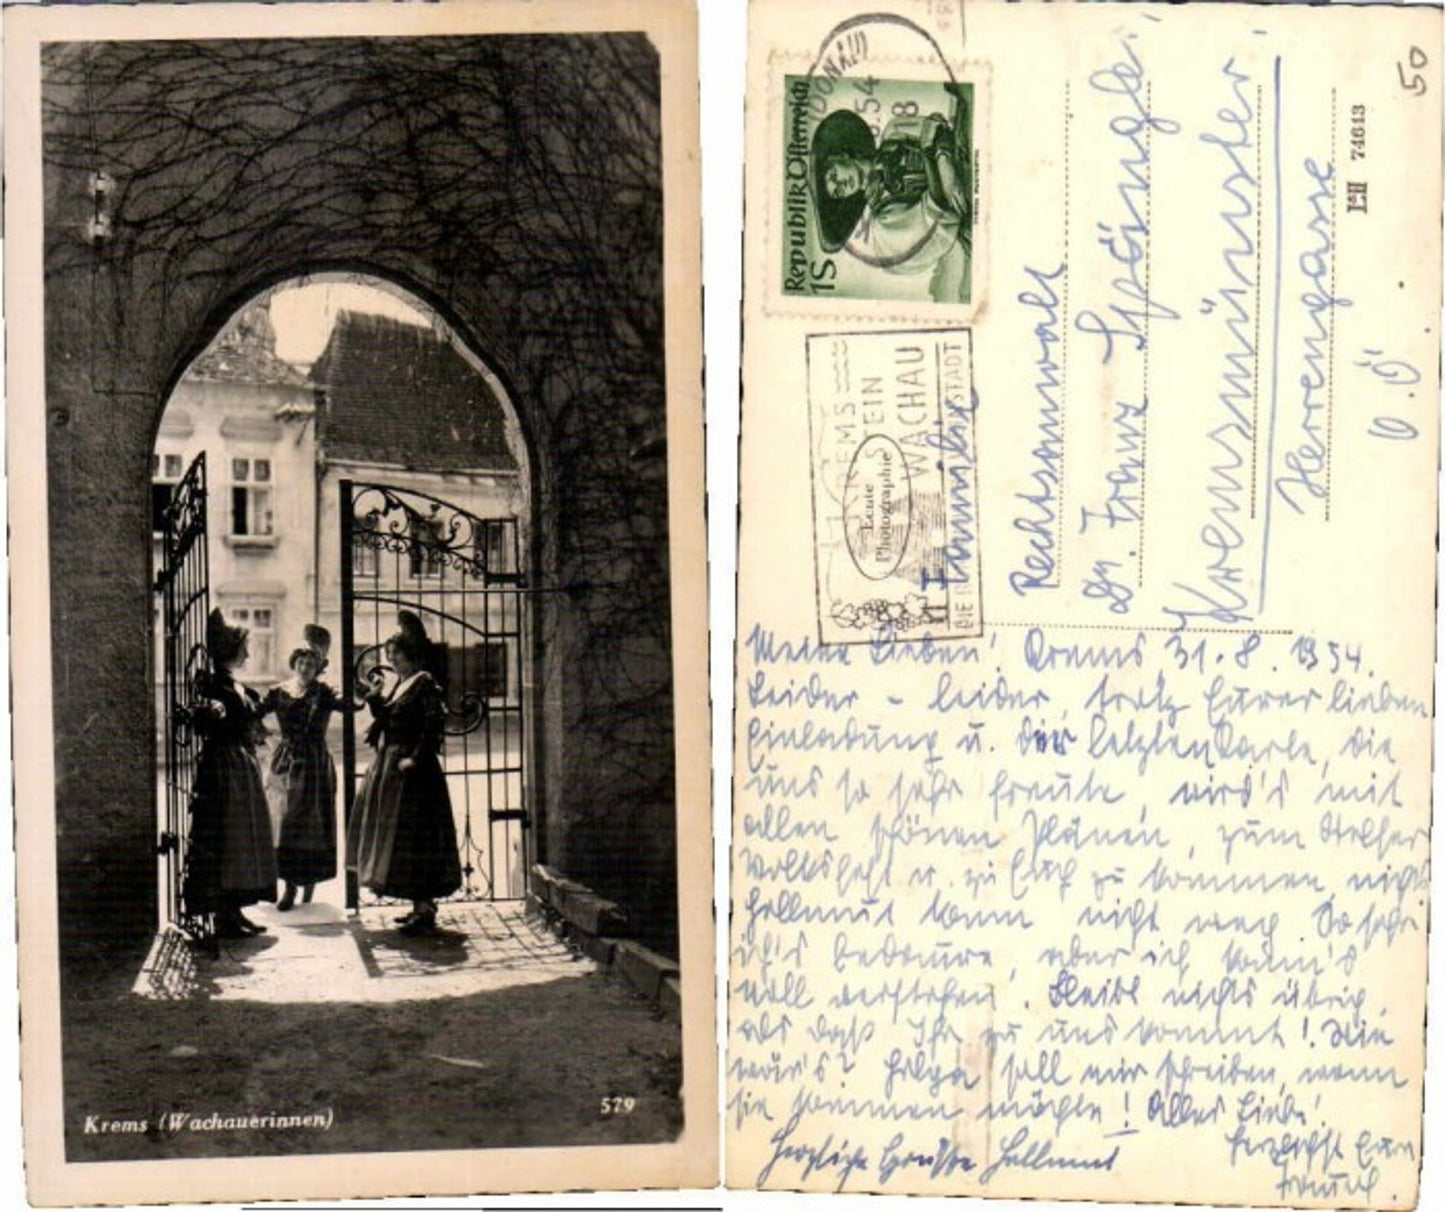 Krems (Wachauerinnen)
579
50
Republik Österreich
1S
(DONAU)
54
8
KREMS
STEIN
WACHAU
STADT
DIE
Echte
Photographie
LH 74643
Familie
Rechtsanwalt
Dr. Franz Spöingler
Kremsmünster
Herrengasse
O.Ö
Meine Lieben! Krems 31.8.1954.
Leider - leider, trotz Eurer lieben
Einladung u. der letzten Karte, die
uns so sehr freute, wird's mit
allen schönen Plänen, zum Welser
Volksfest u. zu Euch zu kommen, nichts
Hellmut kann nicht weg. So sehr
ich's bedaure, aber ich kann's
voll verstehen. Bleibt nichts übrig,
als daß Ihr zu uns kommt! Wie
wär's? Helga soll mir schreiben, wenn
sie kommen möchte! Alles Liebe!
Herzlichst Eure
Herzliche Grüsse Hellmut